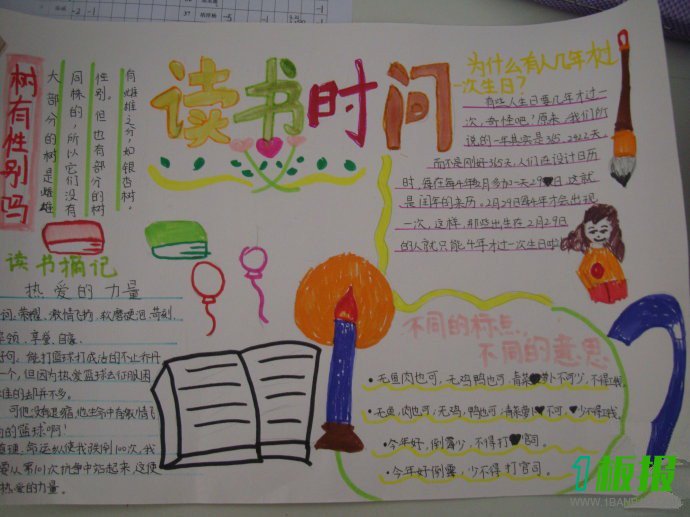 读书时间
树有性别吗
大部分的树是雌雄
同株的,所以它们没有
性别。但也有部分的树
有雌雄之分,如银杏树。
为什么有人几年才过
一次生日?
有些人生日要几年才过一
次,奇怪吧!原来,我们所
说的一年其实是365.2422天,
而不是刚好365天,人们在设计日历
时,每在每4年2月多加一天29日,这就
是闰年的来历。2月29日每4年才会出现
一次,这样,那些出生在2月29日
的人就只能4年才过一次生日啦
读书摘记
热爱的力量
荣耀、激情飞扬、软磨硬泡、苛刻、
享受、自豪
能打篮球打成治的不止乔丹
一个,但因为热爱篮球去征服困
难的却并不多。
的篮球啊!
命运纵使我跌倒100次,我
要从第101次抗争中站起来,这便
热爱的力量。
不同的标点,
不同的意思
·无鱼肉也可,无鸡鸭也可,青菜萝卜不可少,不得
·无鱼,肉也可;无鸡,鸭也可;青菜萝卜不可,少不得
·今年好,倒霉少,不得打官司。
·今年好倒霉,少不得打官司。
1板报